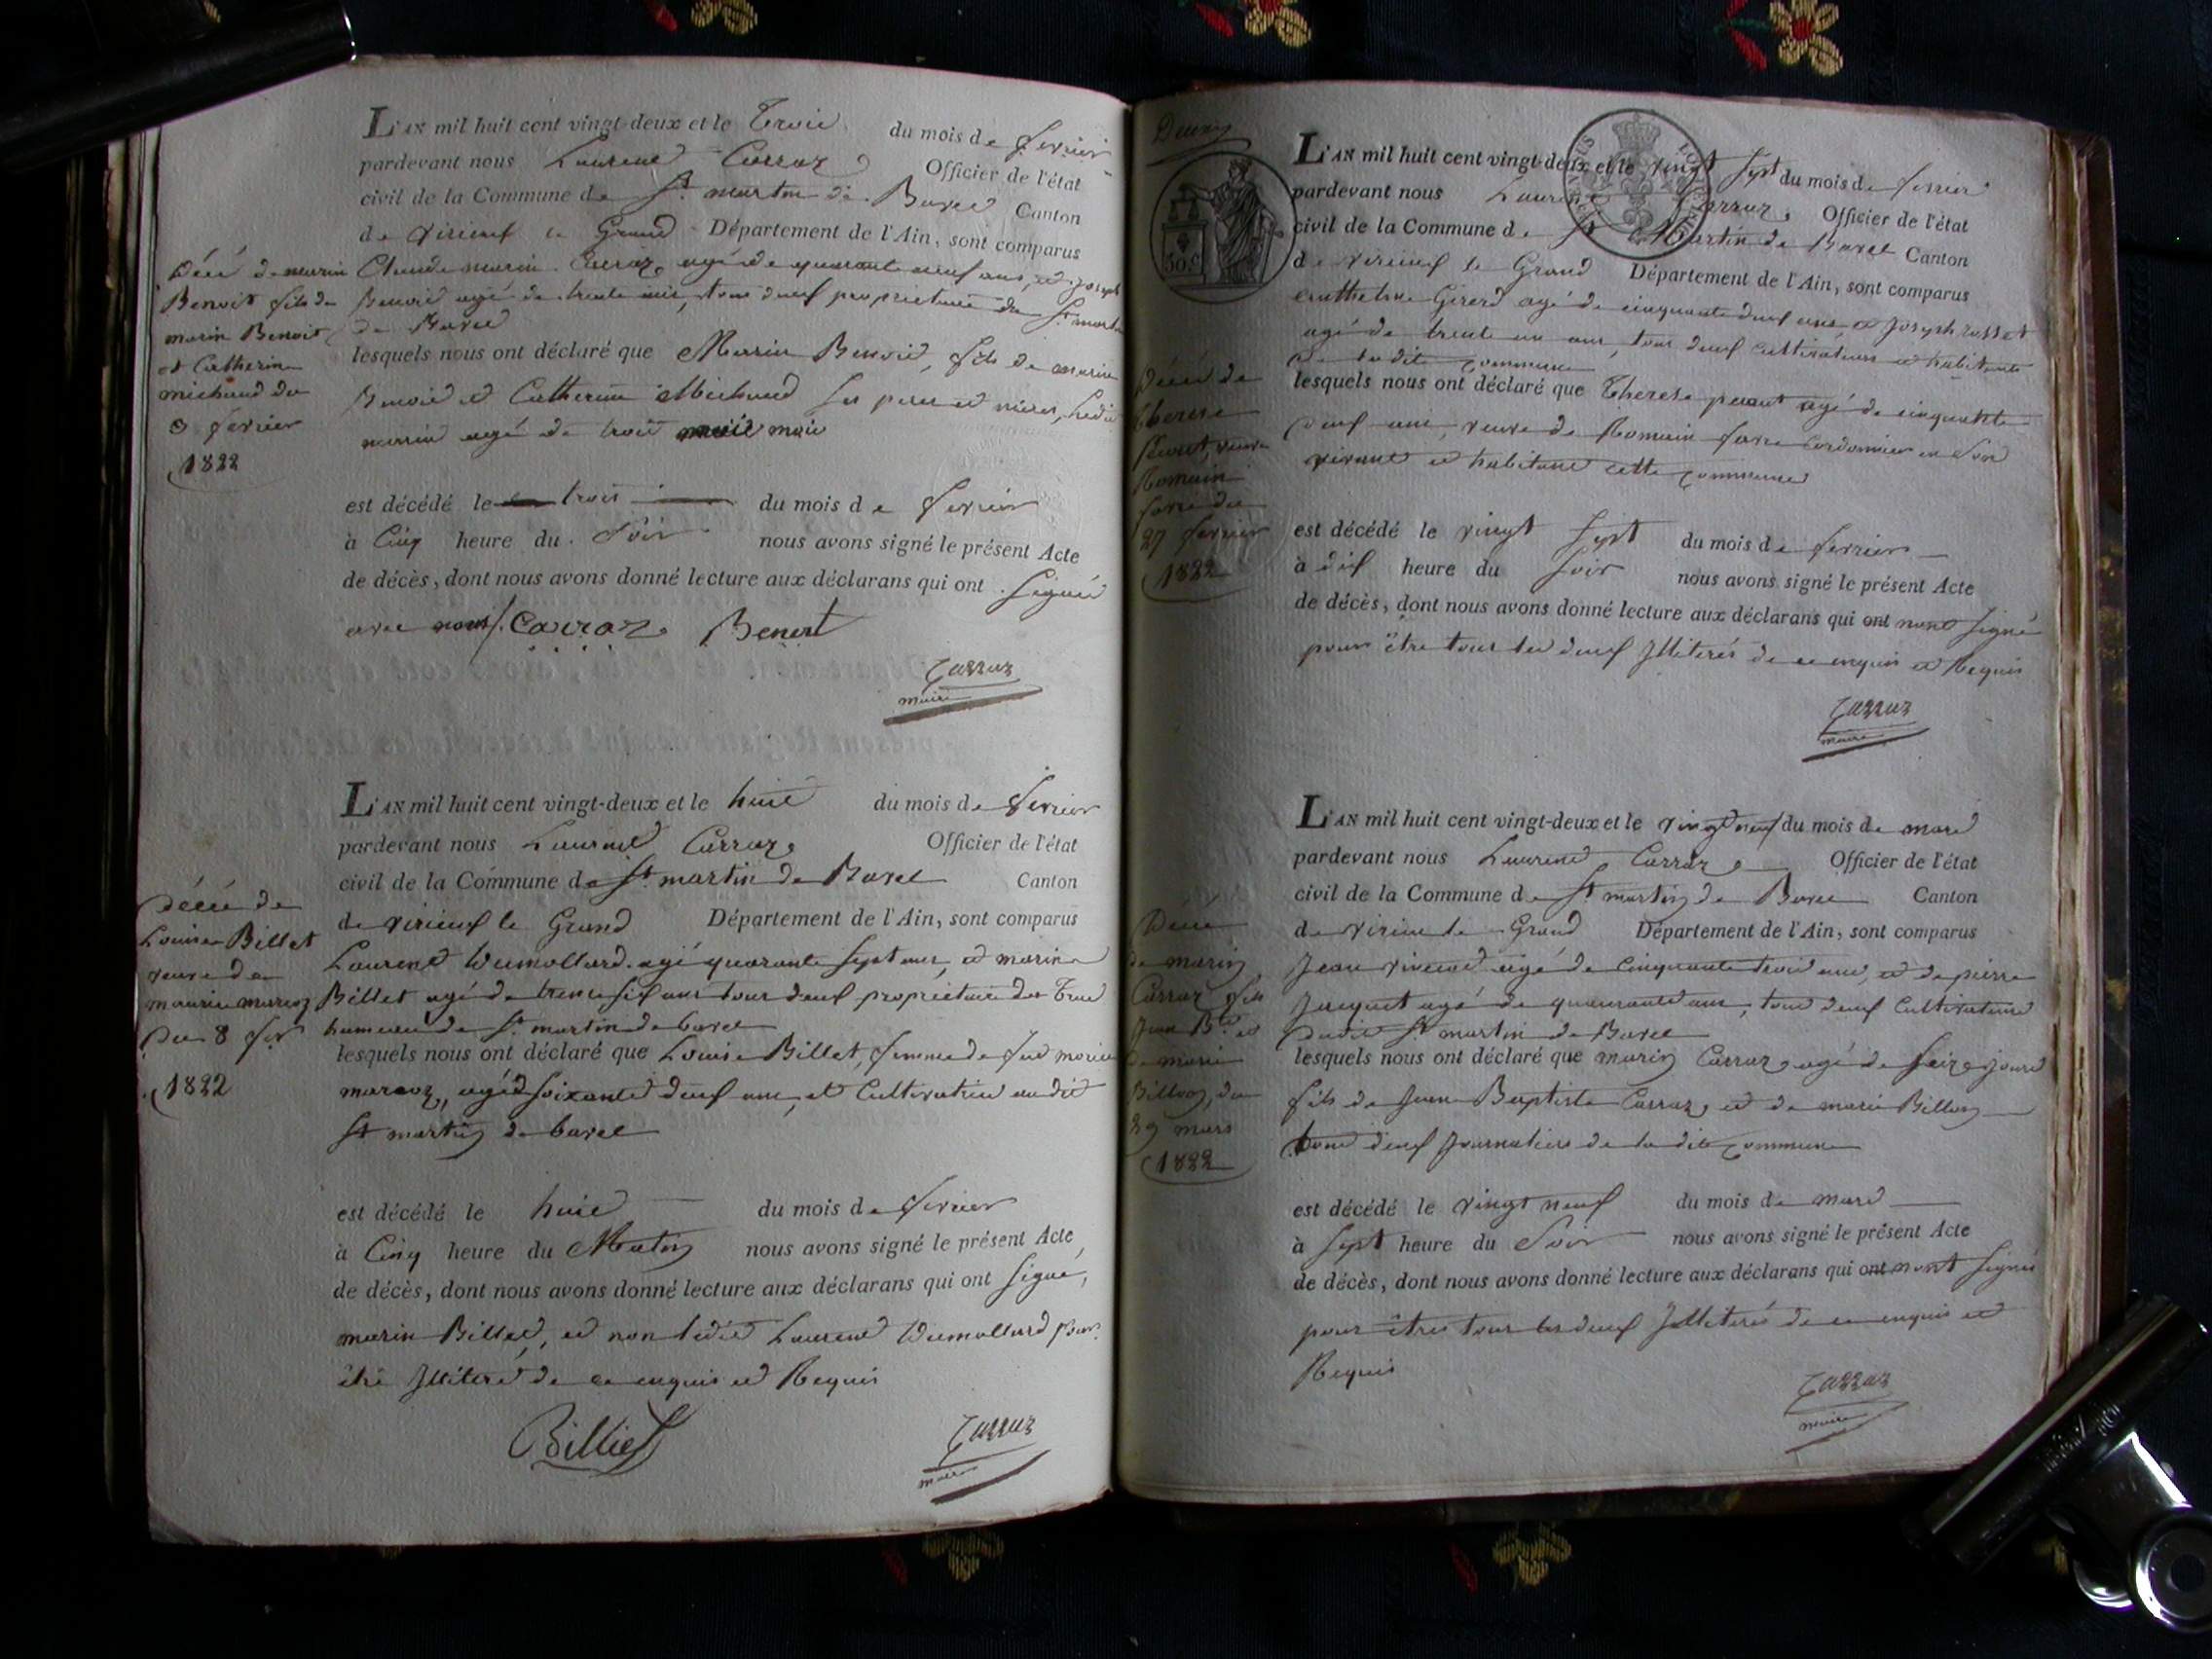 L'AN mil huit cent vingt-deux et le Trois du mois de fevrier
pardevant nous Laurent Carraz Officier de l'état
civil de la Commune de St. martin de Bavel Canton
de virieux le Grand Département de l'Ain, sont comparus
Claude marin Carraz, agé de quarante neuf ans, et joseph
Benoit agé de trente six, tous deux proprietaire de St. martin
de Bavel
lesquels nous ont déclaré que Marin Benoit, fils de marin
Benoit et Catherine Michaud ses pere et mere, ledit
marin agé de trois mois
est décédé le trois du mois de fevrier
à Cinq heure du Soir nous avons signé le présent Acte
de décès, dont nous avons donné lecture aux déclarans qui ont signé
avec nous Carraz Benoit
Carraz
maire
Décé de marin
Benoit fils de
marin Benoit
et Catherine
michaud du
3 fevrier
1822
L'AN mil huit cent vingt-deux et le huit du mois de fevrier
pardevant nous Laurent Carraz Officier de l'état
civil de la Commune de St. martin de Bavel Canton
de virieux le Grand Département de l'Ain, sont comparus
Laurent Dumollard agé quarante sept ans, et marin
Billet agé de trente six ans tous deux proprietaire de
hameau de St. martin de bavel
lesquels nous ont déclaré que Louise Billet, femme de feu
marcoz, agé soixante deux ans, et Cultivatrice audit
St martin de bavel
est décédé le huit du mois de fevrier
à Cinq heure du Matin nous avons signé le présent Acte,
de décès, dont nous avons donné lecture aux déclarans qui ont signé,
marin Billet, et non ledit Laurent Dumollard pour
être Illiteré de ce enquis et Requis
Billiet
Carraz
maire
Décé de
Louise Billet
veuve de
marcoz
Du 8 fer
1822
L'AN mil huit cent vingt-deux et le vingt sept du mois de fevrier
pardevant nous Laurent Carraz Officier de l'état
civil de la Commune de St Martin de Bavel Canton
de virieux le Grand Département de l'Ain, sont comparus
Anthelme Girerd agé de cinquante deux ans, et Joseph rosset
agé de trente un ans, tous deux cultivateurs et habitants
de la dite commune
lesquels nous ont déclaré que Therese agé de cinquante
neuf ans, veuve de Romain favre Cordonnier en son
vivant et habitant cette commune
est décédé le vingt sept du mois de fevrier
à dix heure du soir nous avons signé le présent Acte
de décès, dont nous avons donné lecture aux déclarans qui ont n'ont signé
pour être tous les deux Illiterés de ce enquis et Requis
Carraz
maire
30 C
Décé de
Therese
veuve
Romain
favre du
27 fevrier
1822
L'AN mil huit cent vingt-deux et le vingt neuf du mois de mars
pardevant nous Laurent Carraz Officier de l'état
civil de la Commune de St martin de Bavel Canton
de virieu le Grand Département de l'Ain, sont comparus
Jean vincent agé de Cinquante trois ans, et de pierre
Jacquet agé de quarante ans, tous deux Cultivateurs
dudit St martin de Bavel
lesquels nous ont déclaré que marin Carraz agé de seize jours
fils de Jean Baptiste Carraz, et de marie Billon
tous deux Journaliers de la dite commune
est décédé le vingt neuf du mois de mars
à sept heure du Soir nous avons signé le présent Acte
de décès, dont nous avons donné lecture aux déclarans qui ont n'ont signés
pour être tous les deux Illiterés de ce enquis et
Requis
Carraz
maire
Décé
de marin
Carraz fils
Jean Bte et
de marie
Billon, du
29 mars
1822